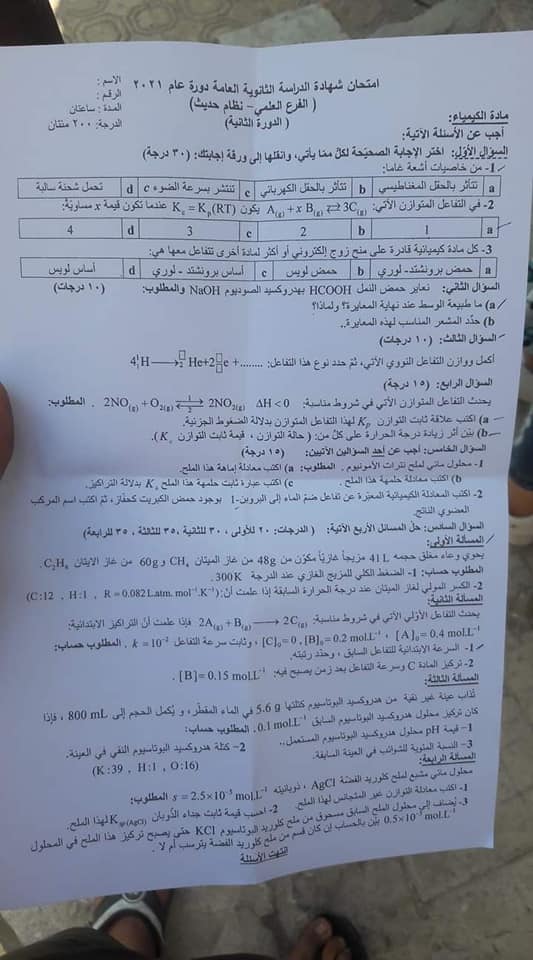 امتحان شهادة الدراسة الثانوية العامة دورة عام ٢٠٢١
( الفرع العلمي– نظام حديث)
( الدورة الثانية)
الاسم :
الرقم :
المدة : ساعتان
الدرجة: ٢٠٠ مئتان
مادة الكيمياء:
أجب عن الأسئلة الآتية:
السؤال الأول: اختر الإجابة الصحيحة لكلّ ممّا يأتي، وانقلها إلى ورقة إجابتك: (٣٠ درجة)
1- من خاصيات أشعة غاما:
a تتأثر بالحقل المغناطيسي b تتأثر بالحقل الكهربائي c تنتشر بسرعة الضوء c d تحمل شحنة سالبة
2- في التفاعل المتوازن الآتي: A(g) + x B(g) ⇄ 3C(g) يكون Kc = Kp(RT) عندما تكون قيمة x مساويةً:
a 1 b 2 c 3 d 4
3- كل مادة كيميائية قادرة على منح زوج إلكتروني أو أكثر لمادة أخرى تتفاعل معها هي:
a حمض برونشتد - لوري b حمض لويس c أساس برونشتد - لوري d أساس لويس
السؤال الثاني: نعاير حمض النمل HCOOH بهدروكسيد الصوديوم NaOH والمطلوب: (١٠ درجات)
a) ما طبيعة الوسط عند نهاية المعايرة؟ ولماذا؟
b) حدّد المشعر المناسب لهذه المعايرة..
السؤال الثالث: (١٠ درجات)
أكمل ووازن التفاعل النووي الآتي، ثمّ حدد نوع هذا التفاعل:
4 ¹₁H ⟶ ₂He + 2 e + ........
السؤال الرابع: (١٥ درجة)
يحدث التفاعل المتوازن الآتي في شروط مناسبة: 2NO(g) + O2(g) ⇄ 2NO2(g) ΔH < 0 . المطلوب:
a) اكتب علاقة ثابت التوازن Kp لهذا التفاعل المتوازن بدلالة الضغوط الجزئية.
b) بيّن أثر زيادة درجة الحرارة على كلّ من: ( حالة التوازن ، قيمة ثابت التوازن Kc ).
السؤال الخامس: أجب عن أحد السؤالين الآتيين: (١٥ درجة)
1- محلول مائي لملح نترات الأمونيوم . المطلوب: a) اكتب معادلة إماهة هذا الملح.
b) اكتب معادلة حلمهة هذا الملح . c) اكتب عبارة ثابت حلمهة هذا الملح Kh بدلالة التراكيز.
2- اكتب المعادلة الكيميائية المعبّرة عن تفاعل ضمّ الماء إلى البروبن-1 بوجود حمض الكبريت كحفّاز، ثم اكتب اسم المركب
العضوي الناتج.
السؤال السادس: حلّ المسائل الأربع الآتية: ( الدرجات: ٢٠ للأولى ، ٣٠ للثانية ،٣٥ للثالثة ، ٣٥ للرابعة)
المسألة الأولى:
يحوي وعاء مغلق حجمه 41 L مزيجاً غازيّاً مكوّن من 48g من غاز الميتان CH4 و 60g من غاز الايتان C2H6 .
المطلوب حساب: 1- الضغط الكلي للمزيج الغازي عند الدرجة 300K .
2- الكسر المولي لغاز الميتان عند درجة الحرارة السابقة إذا علمت أنّ: (C:12 , H:1 , R = 0.082 L.atm. mol⁻¹.K⁻¹)
المسألة الثانية:
يحدث التفاعل الأوّلي الآتي في شروط مناسبة: 2A(g) + B(g) ⟶ 2C(g) فإذا علمت أنّ التراكيز الابتدائية:
[A]0 = 0.4 mol.L⁻¹ ، [B]0 = 0.2 mol.L⁻¹ ، [C]0 = 0 ، وثابت سرعة التفاعل k = 10⁻² . المطلوب حساب:
1- السرعة الابتدائية للتفاعل السابق ، وحدّد رتبته.
2- تركيز المادة C وسرعة التفاعل بعد زمن يصبح فيه: [B] = 0.15 mol.L⁻¹ .
المسألة الثالثة:
تُذاب عينة غير نقيّة من هدروكسيد البوتاسيوم كتلتها 5.6 g في الماء المقطّر، و يُكمل الحجم إلى 800 mL ، فإذا
كان تركيز محلول هدروكسيد البوتاسيوم السابق 0.1 mol.L⁻¹ . المطلوب حساب:
1– قيمة pH محلول هدروكسيد البوتاسيوم المستعمل..
2– كتلة هدروكسيد البوتاسيوم النقي في العينة.
3– النسبة المئوية للشوائب في العينة السابقة.
(K:39 , H:1 , O:16)
المسألة الرابعة:
محلول مائي مشبع لملح كلوريد الفضّة AgCl ، ذوبانيته s = 2.5×10⁻⁵ mol.L⁻¹ المطلوب:
1- اكتب معادلة التوازن غير المتجانس لهذا الملح. 2- احسب قيمة ثابت جداء الذوبان Ksp(AgCl) لهذا الملح.
3- يُضاف إلى محلول الملح السابق مسحوق من ملح كلوريد البوتاسيوم KCl حتى يصبح تركيز هذا الملح في المحلول
0.5×10⁻⁵ mol.L⁻¹ بيّن بالحساب إن كان قسم من ملح كلوريد الفضة يترسب أم لا .
انتهت الأسئلة